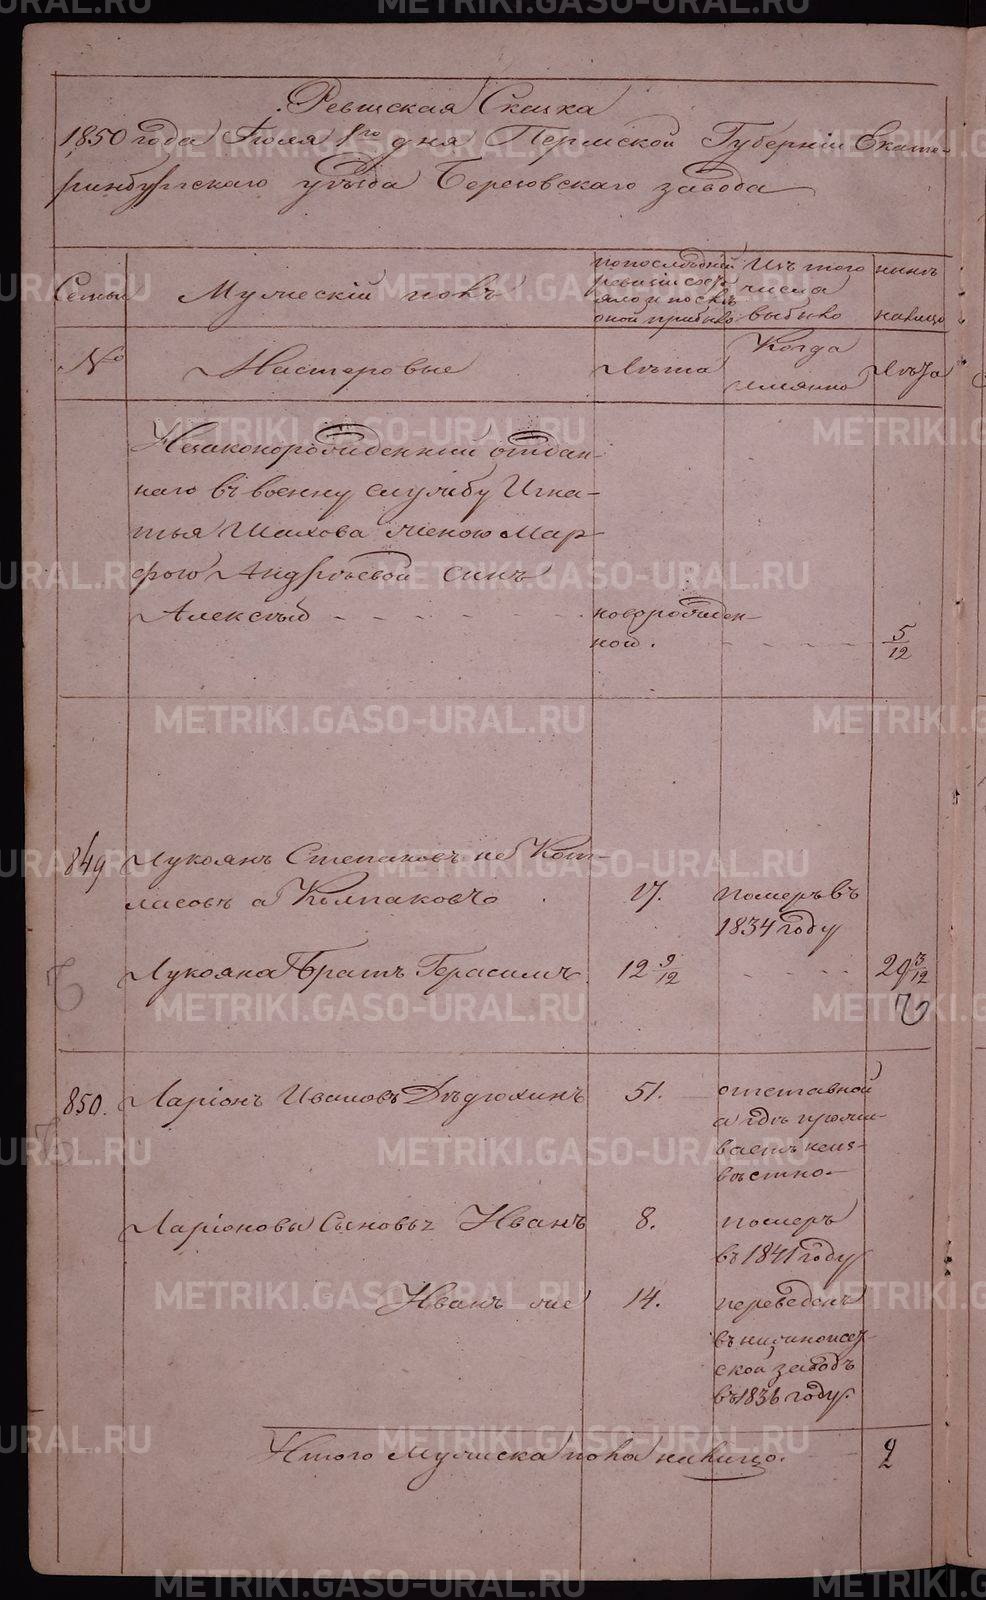 Ревижская Сказка
1850 года Июля 8го дня Пермской Губерніи Екате-
ринбургскаго уѣзда Березовскаго завода
Семьи
Мужескій полъ
по послѣдней
ревизіи состо
яло и послѣ
оной прибыло
Изъ того
числа
выбыло
нынѣ
налицо
№
Мастеровые
Лѣта
Когда
имянно
Лѣта
Незаконорожденный отдан-
наго въ военну службу Игна-
тья Шахова женою Мар-
фою Андреевой сынъ
Алексѣй
новорожден-
ной.
5/12
849
Лукоянъ Степановъ не Кот-
ласовъ а Колпаковъ
17.
померъ въ
1834 году
Лукояна братъ Герасимъ
12 9/12
29 3/12
850.
Ларіонъ Ивановъ Дѣдюхинъ
51.
отставной
а гдѣ прожи-
ваетъ неиз-
вѣстно
Ларіоновы Сыновья Иванъ
8.
померъ
въ 1841 году
Иванъ же
14.
переведенъ
въ нижноисет-
ской заводъ
въ 1836 году.
Итого Мужеска пола налицо.
2
METRIKI.GASO-URAL.RU